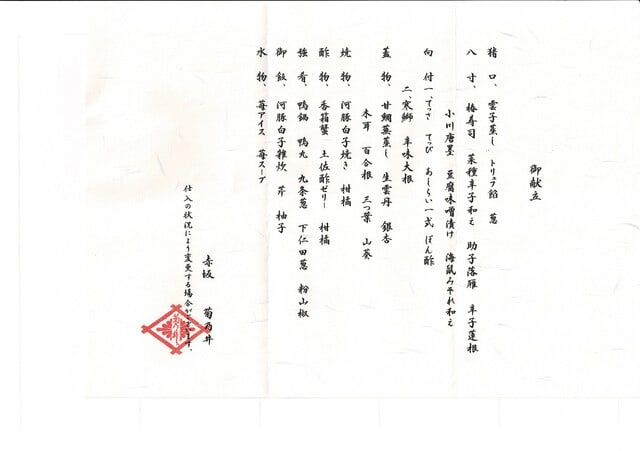 御献立
猪口、雲子蒸し トリュフ餡 葱
八寸、梅寿司 菜種辛子和え 助子落雁 辛子蓮根
小川唐墨 豆腐味噌漬け 海鼠みぞれ和え
向付一、てっさ てっぴ あしらい一式 ぽん酢
二、寒鰤 辛味大根
蓋物、甘鯛蕪蒸し 生雲丹 銀杏
木耳 百合根 三つ葉 山葵
焼物、河豚白子焼き 柑橘
酢物、香箱蟹 土佐酢ゼリー 柑橘
強肴、鴨鍋 鴨丸 九条葱 下仁田葱 粉山椒
御飯、河豚白子雑炊 芹 柚子
水物、苺アイス 苺スープ
赤坂 菊乃井
仕入の状況により変更する場合がございます。